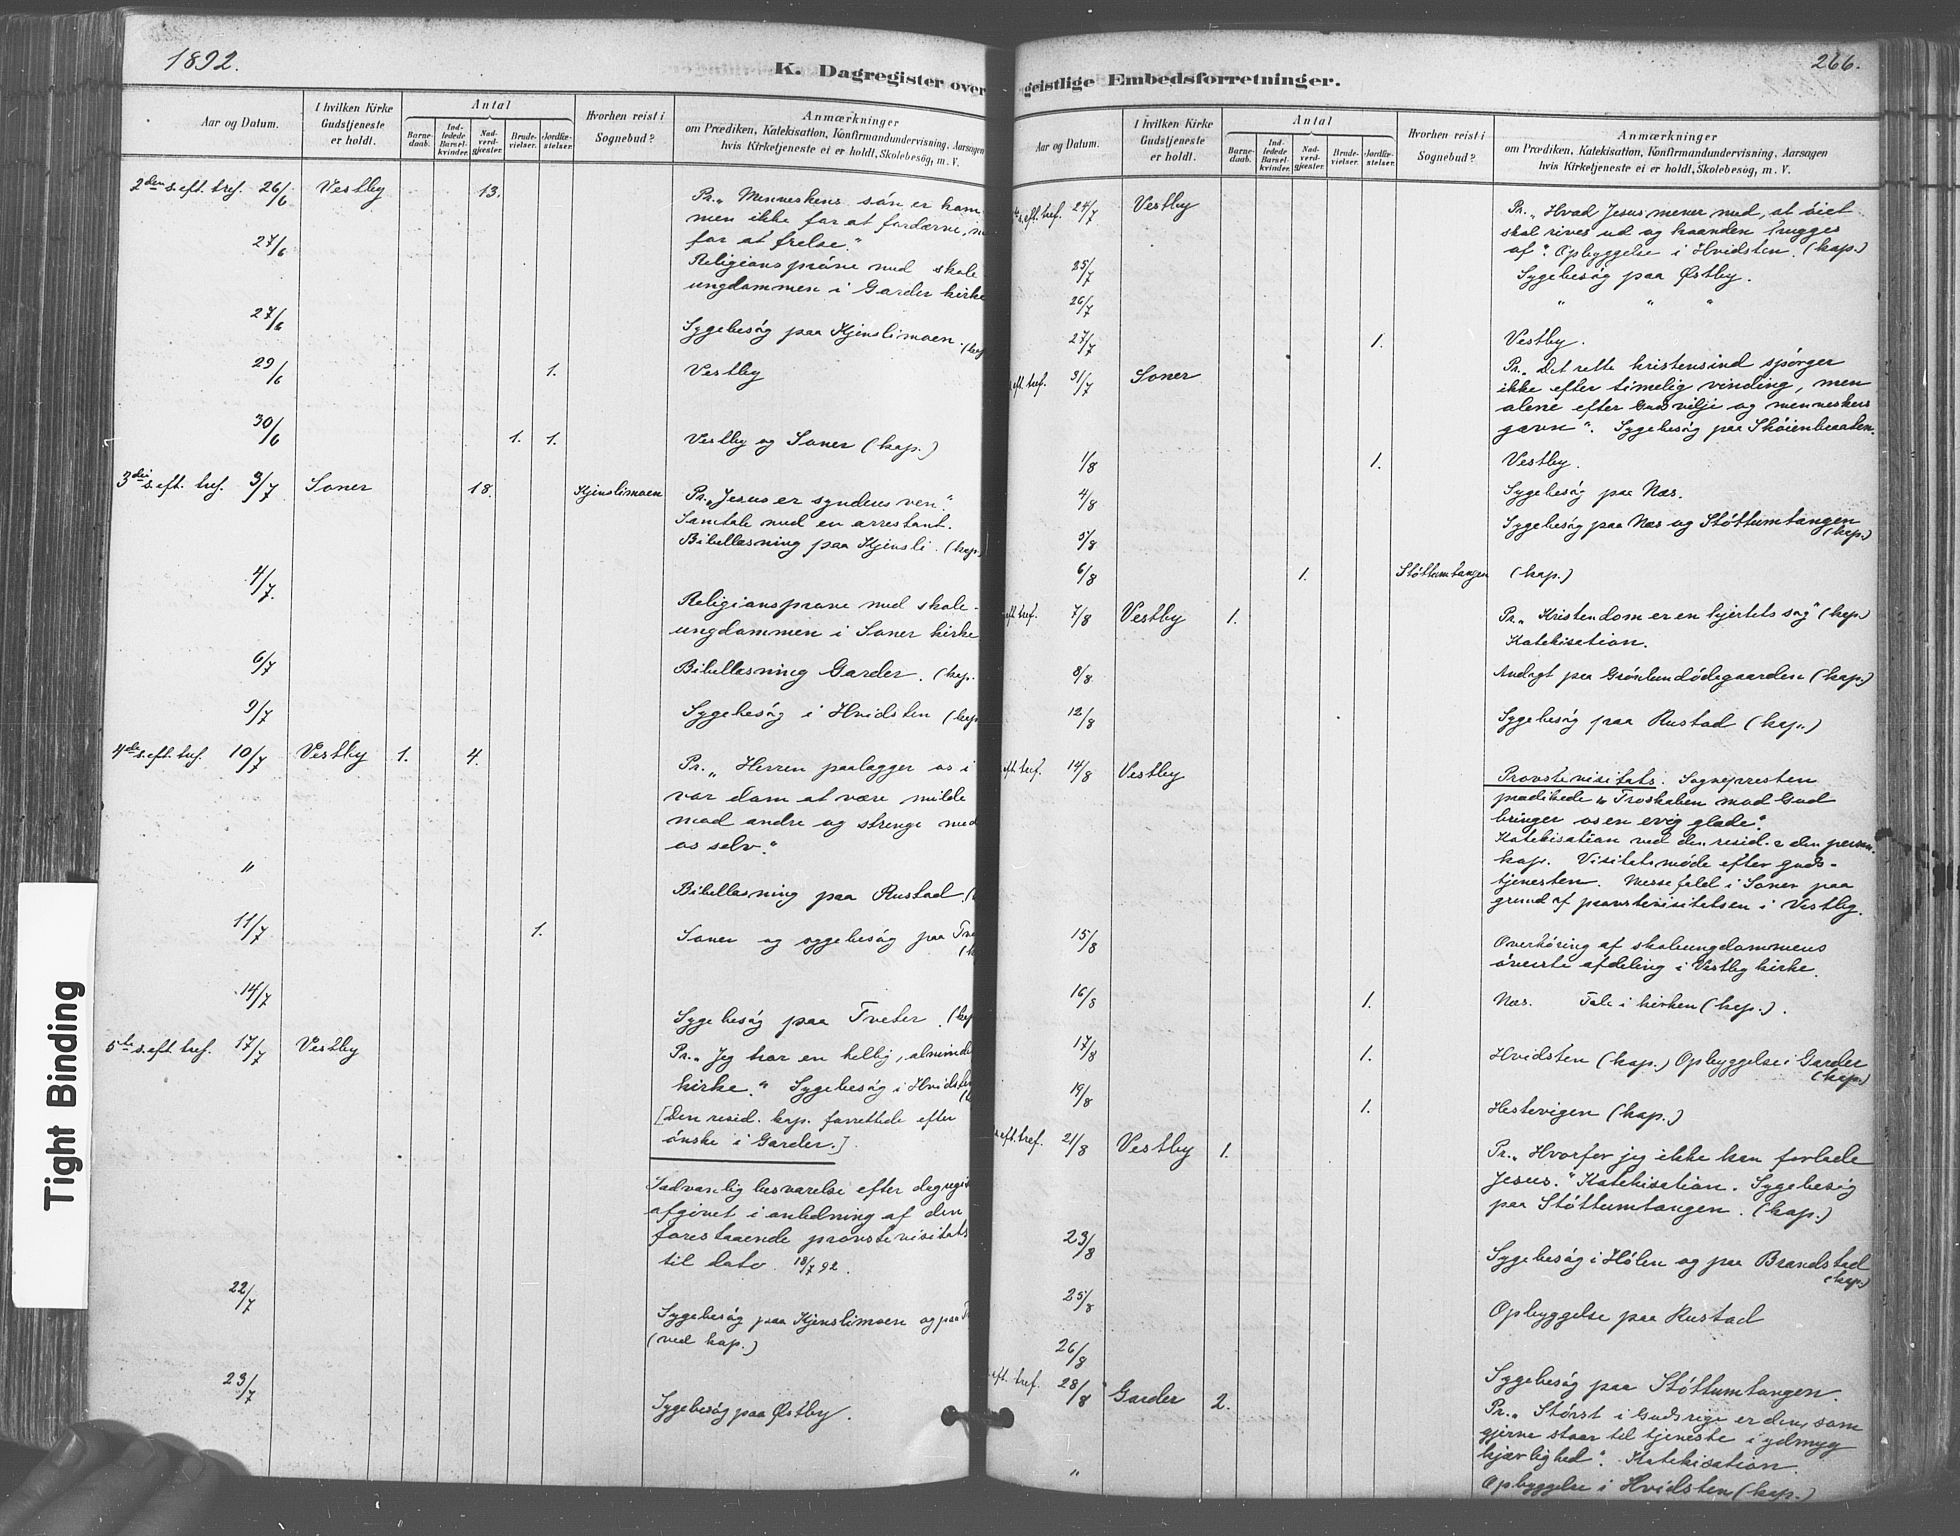 1892.
K. Dagregister over
Aar og Datum.
I hvilken Kirke Gudstjeneste er holdt.
Antal
Barne-daab.
Ind-ledede Barsel-kvinder.
Nad-verd-gjæster.
Brude-vielser.
Jordfæ-stelser.
Hvorhen reist i Sognebud?
Anmærkninger
om Prædiken, Katekisation, Konfirmandundervisning, Aarsagen
hvis Kirketjeneste ei er holdt, Skolebesøg, m. V.
2den s. eft. tref. 26/6 Vestby 13. Pr. „Menneskens søn er kom-
men ikke for at fordærve, m
for at frelse."
27/6 Religionsprøve med skole
ungdommen i Garder kirke
27/6 Sygebesøg paa Kjenslimoen. (kap
29/6 1. Vestby
30/6 1. 1. Vestby og Soner (kap.)
3die s. eft. tref. 3/7 Soner 18. Kjenslimoen Pr. „Jesus er synderes ven."
Samtale med en arrestant.
Bibellæsning paa Kjensli. (kap.)
4/7. Religionsprøve med skole-
ungdommen i Soner kirke
6/7 Bibellæsning Garder. (kap.
9/7 Sygebesøg i Hvidsten (kap
4de s. eft. tref. 10/7 Vestby 1. 4. Pr. „Herren paalægger os i
vor dom at være milde
mod andre og strenge mod
os selv."
" Bibellæsning paa Rustad. (
11/7 1. Soner og sygebesøg paa Tve
(k
14/7 Sygebesøg paa Tveter. (kap
5te s. eft. tref. 17/7 Vestby Pr. „Jeg tror en hellig, alminde
kirke." Sygebesøg i Hvidsten
[Den resid. kap. forrettede efter
ønske i Garder.]
Sædvanlig besvarelse efter dagregist
afgivet i anledning af den
forestaaende provstevisitats
til dato. 18/7 92.
22/7 Sygebesøg paa Kjenslimoen og paa T
(ved kap.)
23/7 Sygebesøg paa Østby.
266.
geistlige Embedsforretninger.
Aar og Datum.
I hvilken Kirke Gudstjeneste er holdt.
Antal
Barne-daab.
Ind-ledede Barsel-kvinder.
Nad-verd-gjæster.
Brude-vielser.
Jordfæ-stelser.
Hvorhen reist i Sognebud?
Anmærkninger
om Prædiken, Katekisation, Konfirmandundervisning, Aarsagen
hvis Kirketjeneste ei er holdt, Skolebesøg, m. V.
te s. eft. tref. 24/7 Vestby Pr. „Hvad Jesus mener med, at øiet
skal rives ud og haanden hugges
af". Opbyggelse i Hvidsten. (kap.)
25/7 Sygebesøg paa Østby.
26/7 " " "
27/7 1. Vestby.
eft. tref. 31/7 Soner Pr. „Det rette kristensind spørger
ikke efter timelig vinding, men
alene efter Guds vilje og menneskers
gavn". Sygebesøg paa Skøienbraaten.
1/8 1. Vestby.
4/8 Sygebesøg paa Næs.
5/8 Sygebesøg paa Næs og Støttumtangen
(kap.)
6/8 1. Støttumtangen (kap.)
eft. tref. 7/8 Vestby 1. Pr. „Kristendom er en hjertets sag" (kap.)
Katekisation.
8/8 Andagt paa Grønlundødegaarden (kap.)
12/8 Sygebesøg paa Rustad (kap.)
eft. tref. 14/8 Vestby Provstevisitats. Sognepresten
prædikede „Troskaben mod Gud
bringer os en evig glæde".
Katekisation ved den resid. & den person.
kap. Visitatsmøde efter guds-
tjenesten. Messefald i Soner paa
grund af provstevisitatsen i Vestby.
15/8 Overhøring af skoleungdommens
øverste afdeling i Vestby kirke.
16/8 1. Næs. Tale i kirken (kap.).
17/8 1. Hvidsten (kap.) Opbyggelse i Garder
(kap.)
19/8 1. Hestevigen (kap.)
s. eft. tref. 21/8 Vestby 1. Pr. „Hvorfor jeg ikke kan forlade
Jesus." Katekisation. Sygebesøg
paa Støttumtangen. (kap.)
23/8 Sygebesøg i Hølen og paa Brandstad
(kap.)
25/8 Opbyggelse paa Rustad
26/8 Sygebesøg paa Støttumtangen.
eft. tref. 28/8 Garder 2. Pr. „Størst i Guds rige er den, som
gjerne staar til tjeneste i ydmyg
kjærlighed". Katekisation.
" Opbyggelse i Hvidsten (kap.)
Tight Binding